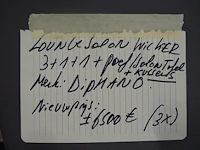 LOUNGE SALON WICKER
3+1+1+ poef/Salon Tafel
+ KUSSENS
Merk: DIPHANO.
Nieuwprijs:
± 6500 € (3x)